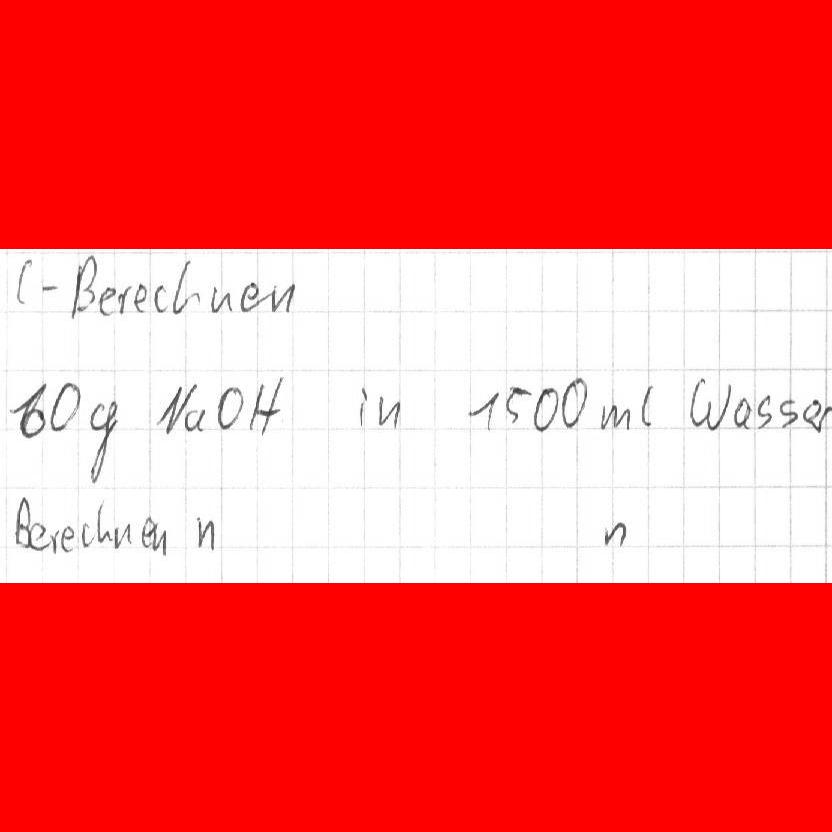 C-Berechnen
60g NaOH in 1500ml Wasser
Berechnen n n